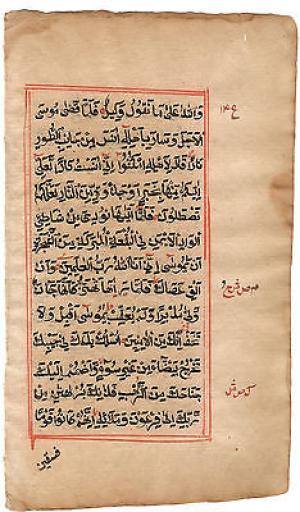 وَاللّٰهُ عَلٰى مَا نَقُوْلُ وَكِيْلٌ فَلَمَّا قَضٰى مُوْسَى
الْاَجَلَ وَسَارَ بِاَهْلِهٖ اٰنَسَ مِنْ جَانِبِ الطُّوْرِ
نَارًا قَالَ لِاَهْلِهِ امْكُثُوْا اِنِّيْ اٰنَسْتُ نَارًا لَعَلِّيْ
اٰتِيْكُمْ مِنْهَا بِخَبَرٍ اَوْ جَذْوَةٍ مِنَ النَّارِ لَعَلَّكُمْ
تَصْطَلُوْنَ فَلَمَّا اَتٰىهَا نُوْدِيَ مِنْ شَاطِئِ
الْوَادِ الْاَيْمَنِ فِي الْبُقْعَةِ الْمُبٰرَكَةِ مِنَ الشَّجَرَةِ
اَنْ يّٰمُوْسٰى اِنِّيْ اَنَا اللّٰهُ رَبُّ الْعٰلَمِيْنَ وَاَنْ
اَلْقِ عَصَاكَ فَلَمَّا رَاٰهَا تَهْتَزُّ كَاَنَّهَا جَانٌّ
وَّلّٰى مُدْبِرًا وَّلَمْ يُعَقِّبْ يٰمُوْسٰى اَقْبِلْ وَلَا
تَخَفْ اِنَّكَ مِنَ الْاٰمِنِيْنَ اُسْلُكْ يَدَكَ فِيْ جَيْبِكَ
تَخْرُجْ بَيْضَآءَ مِنْ غَيْرِ سُوْءٍ وَّاضْمُمْ اِلَيْكَ
جَنَاحَكَ مِنَ الرَّهْبِ فَذٰنِكَ بُرْهَانٰنِ مِنْ
رَّبِّكَ اِلٰى فِرْعَوْنَ وَمَلَا۟ئِهٖ اِنَّهُمْ كَانُوْا قَوْمًا
فسقين